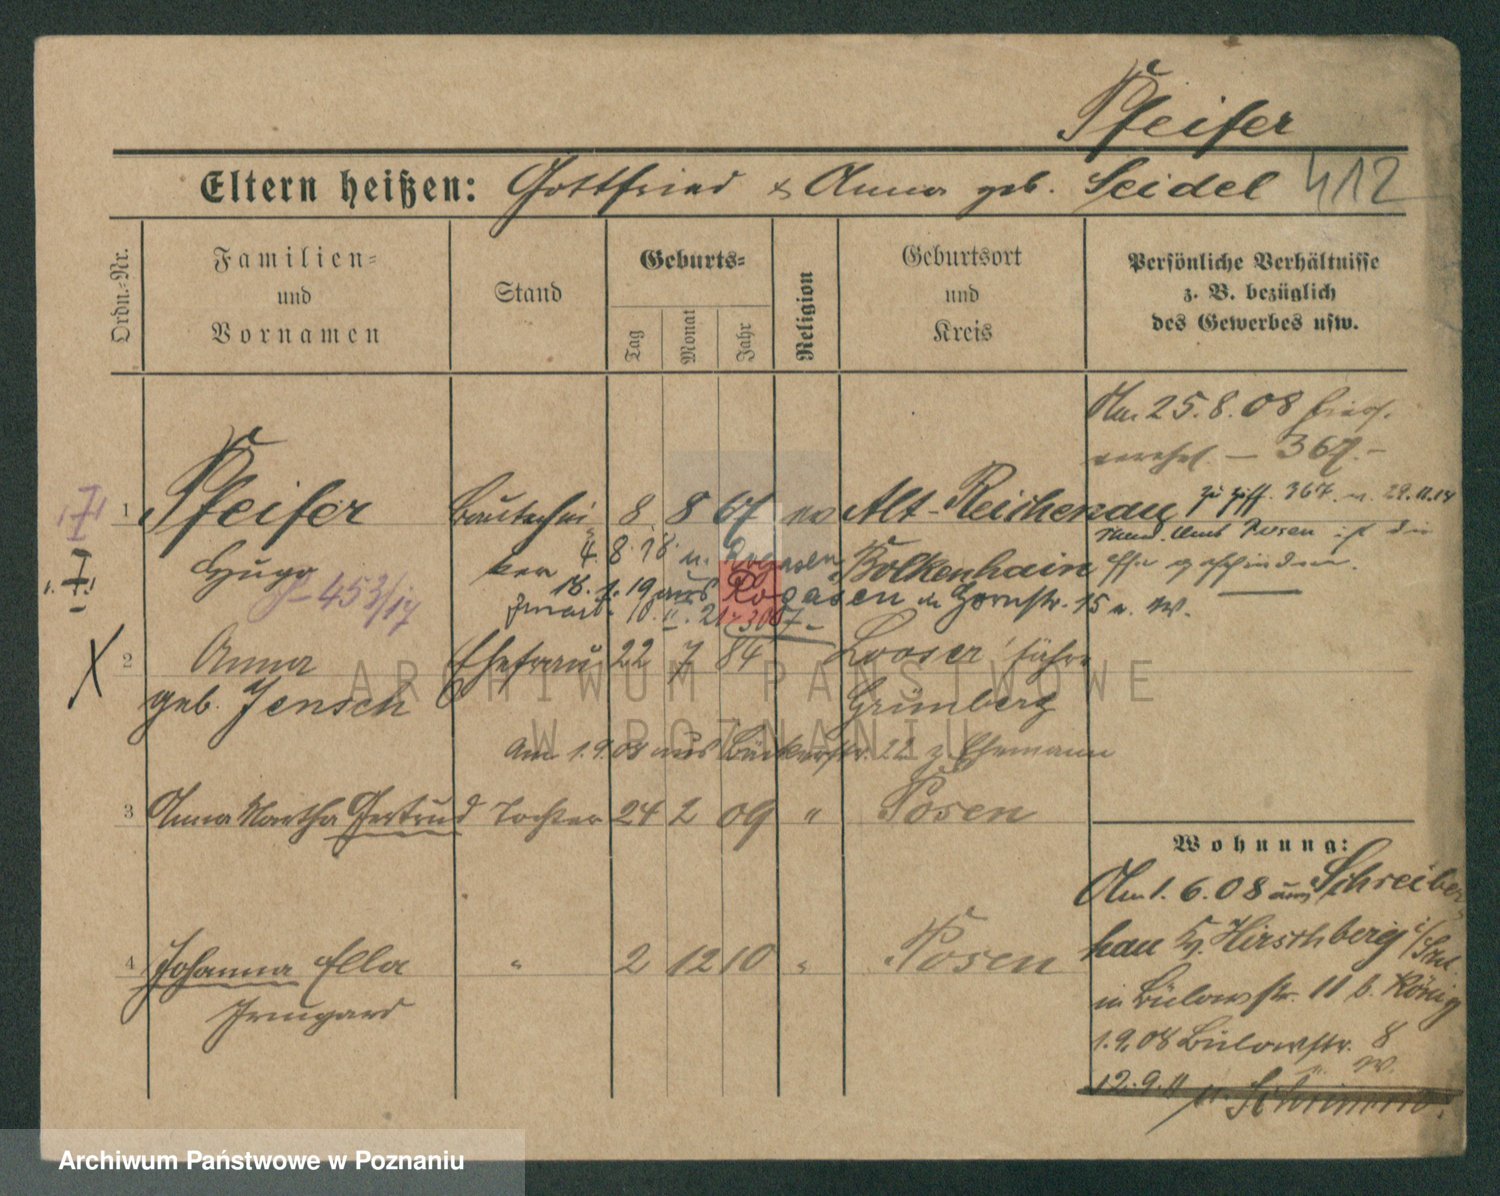 Pfeifer
Eltern heißen: Gottfried & Anna geb. Seidel 412
Ordn.-Nr.
Familien-
und
Vornamen
Stand
Geburts-
Tag
Monat
Jahr
Religion
Geburtsort
und
Kreis
Persönliche Verhältnisse
z. B. bezüglich
des Gewerbes usw.
Am 25.8.08 hies.
verehel. — 367.-
1 Pfeifer Bautechni- 8 8 67 ev Alt-Reichenau
zu Ziff. 367 v. 29.11.14
Stand. Amt Posen ist die
Ehe geschieden.
Hugo ker 4.8.18 n. Rogasen Bolkenhain
J 453/17
18.1.19 aus Rogasen in Hornstr. 15 v. W.
10.11.21
2 Anna Ehefrau 22 7 84 Looser
geb. Jensch Grünberg
Am 1.9.08 aus Bäckerstr. 22 z. Ehemann
3 Anna Martha Gertrud Tochter 24 2 09 " Posen
4 Johanna Ella " 2 12 10 " Posen
Irmgard
Wohnung:
Am 1.6.08 aus Schreiber-
hau Kr. Hirschberg i/Schl.
in Bülowstr. 11 b. König
1.9.08 Bülowstr. 8
W.
12.9.11 n. Schrimm
ARCHIWUM PAŃSTWOWE
W POZNANIU
Archiwum Państwowe w Poznaniu